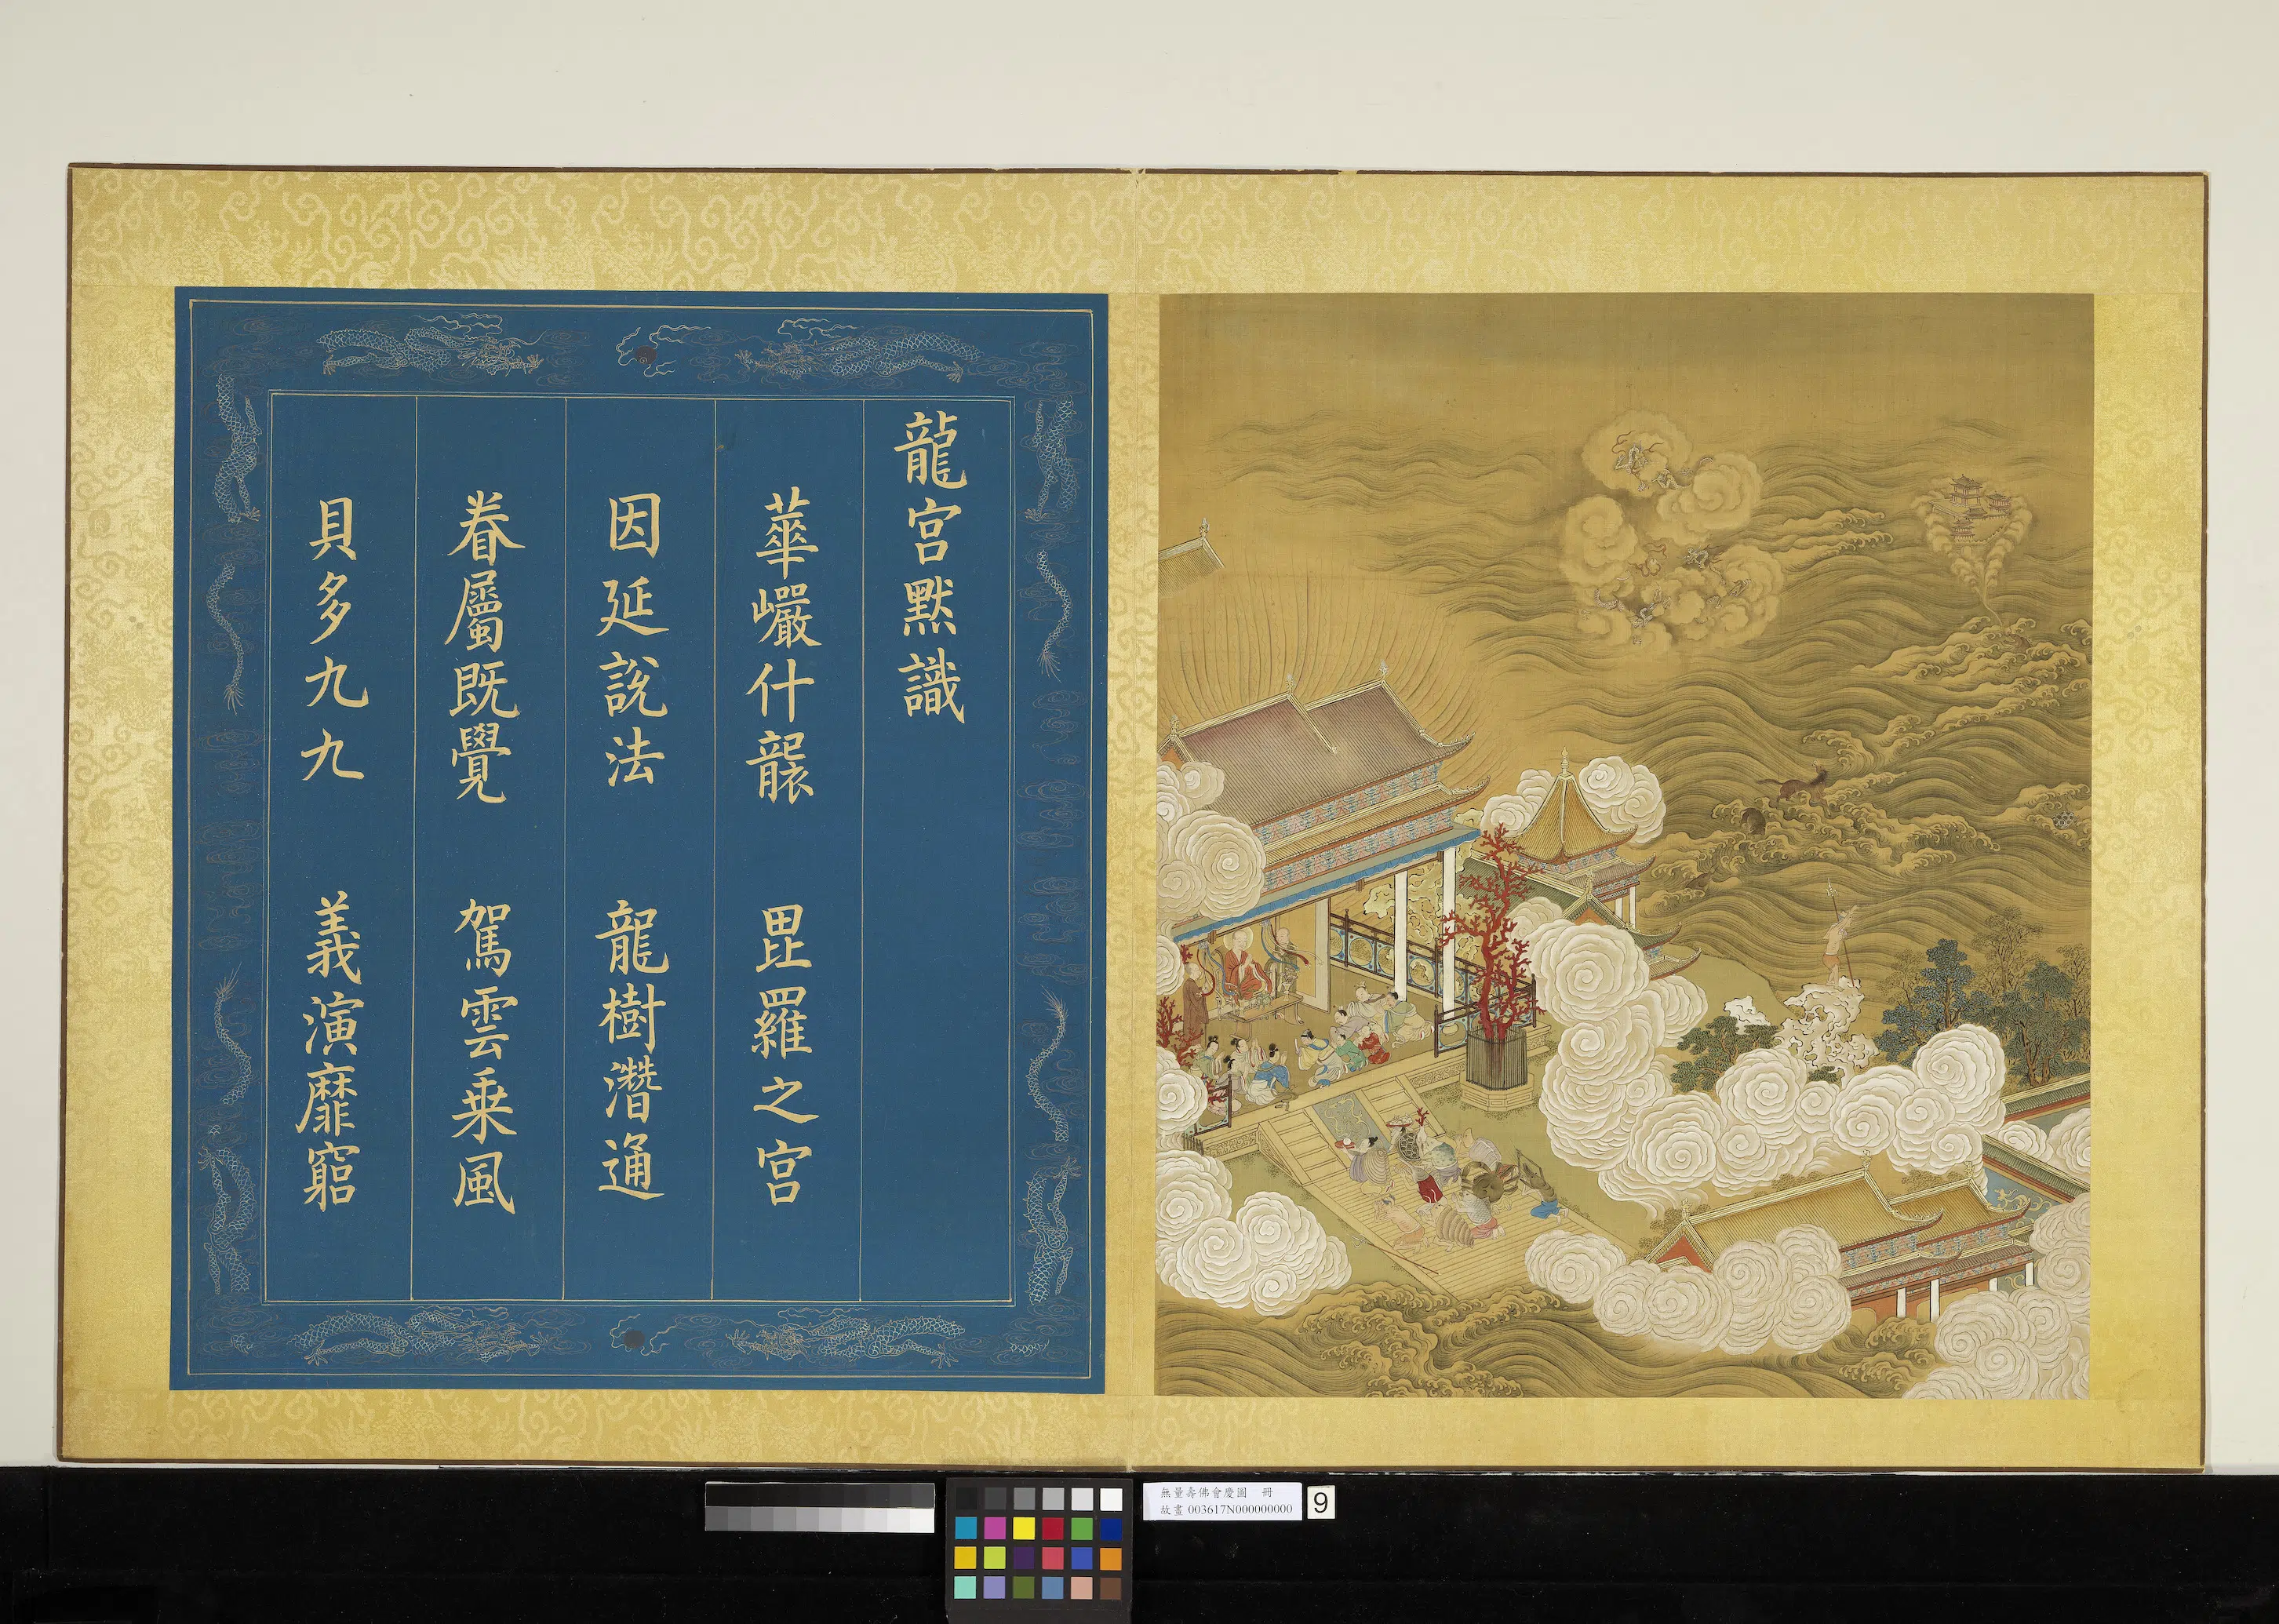 龍宮默識
華巗什襲　毘羅之宮
因延說法　龍樹潛通
眷屬既覺　駕雲乗風
貝多九九　義演靡窮
無量壽佛會慶圖　冊
故畫 003617N000000000
9